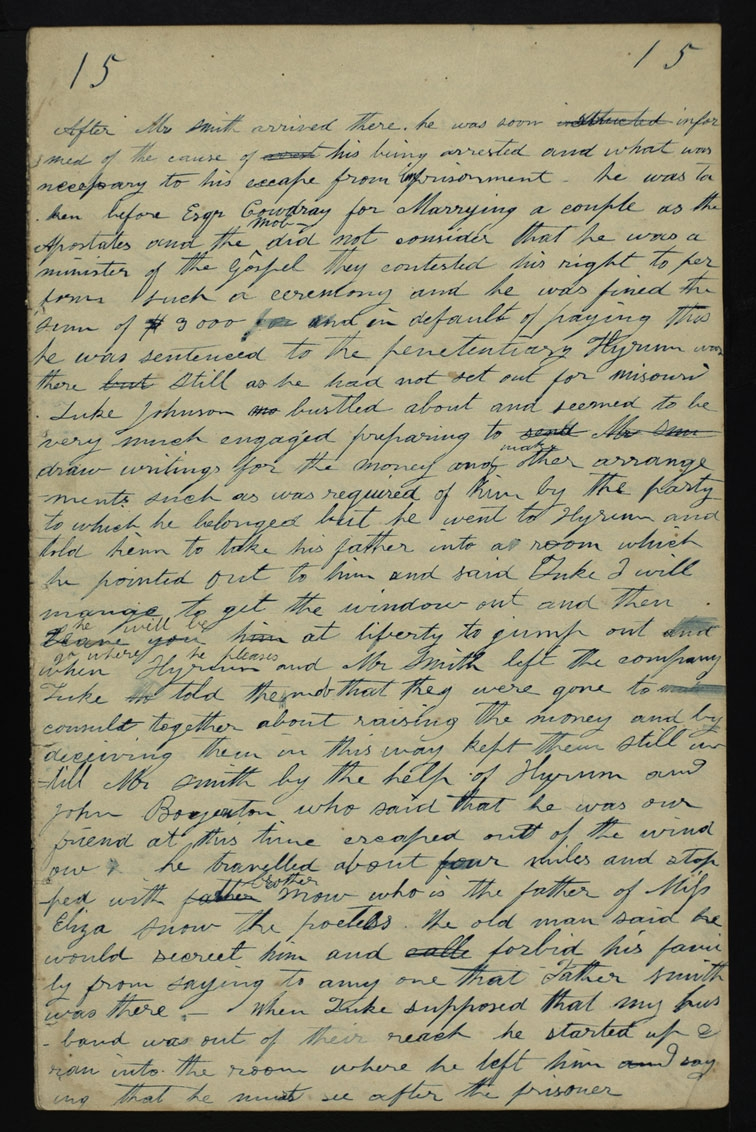 15 15
After Mr Smith arrived there. he was soon instructed infor
med of the cause of his being arrested and what was
necessary to his escape from imprisonment he was ta
ken before Esqr Cowdray for Marrying a couple as the
mob
Apostates and the did not consider that he was a
minister of the Gospel they contested his right to per
form such a ceremony and he was fined the
sum of $3000 and in default of paying this
he was sentenced to the penetentiary Hyrum was
there but still as he had not set out for misouri
Luke Johnson bustled about and seemed to be
very much engaged preparing to send Mr Smi
make
draw writings for the money and other arrange
ments such as was required of him by the party
to which he belonged but he went to Hyrum and
told him to take his father into a room which
he pointed out to him and said Luke I will
manage to get the window out and then
he will be
leave you him at liberty to jump out and
go where he pleases
when Hyrum and Mr Smith left the company
Luke told the mob that they were gone to
consult together about raising the money and by
deceiving them in this way kept them still un
till Mr Smith by the help of Hyrum and
John Boyenton who said that he was our
friend at this time escaped out of the wind
ow he travelled about four miles and stop
brother
ped with father Snow who is the father of Miss
Eliza Snow the poetess the old man said he
would secreet him and calle forbid his fami
ly from saying to any one that Father Smith
was there — When Luke supposed that my hus
band was out of their reach he started up &
ran into the room where he left him and say
ing that he must see after the prisoner